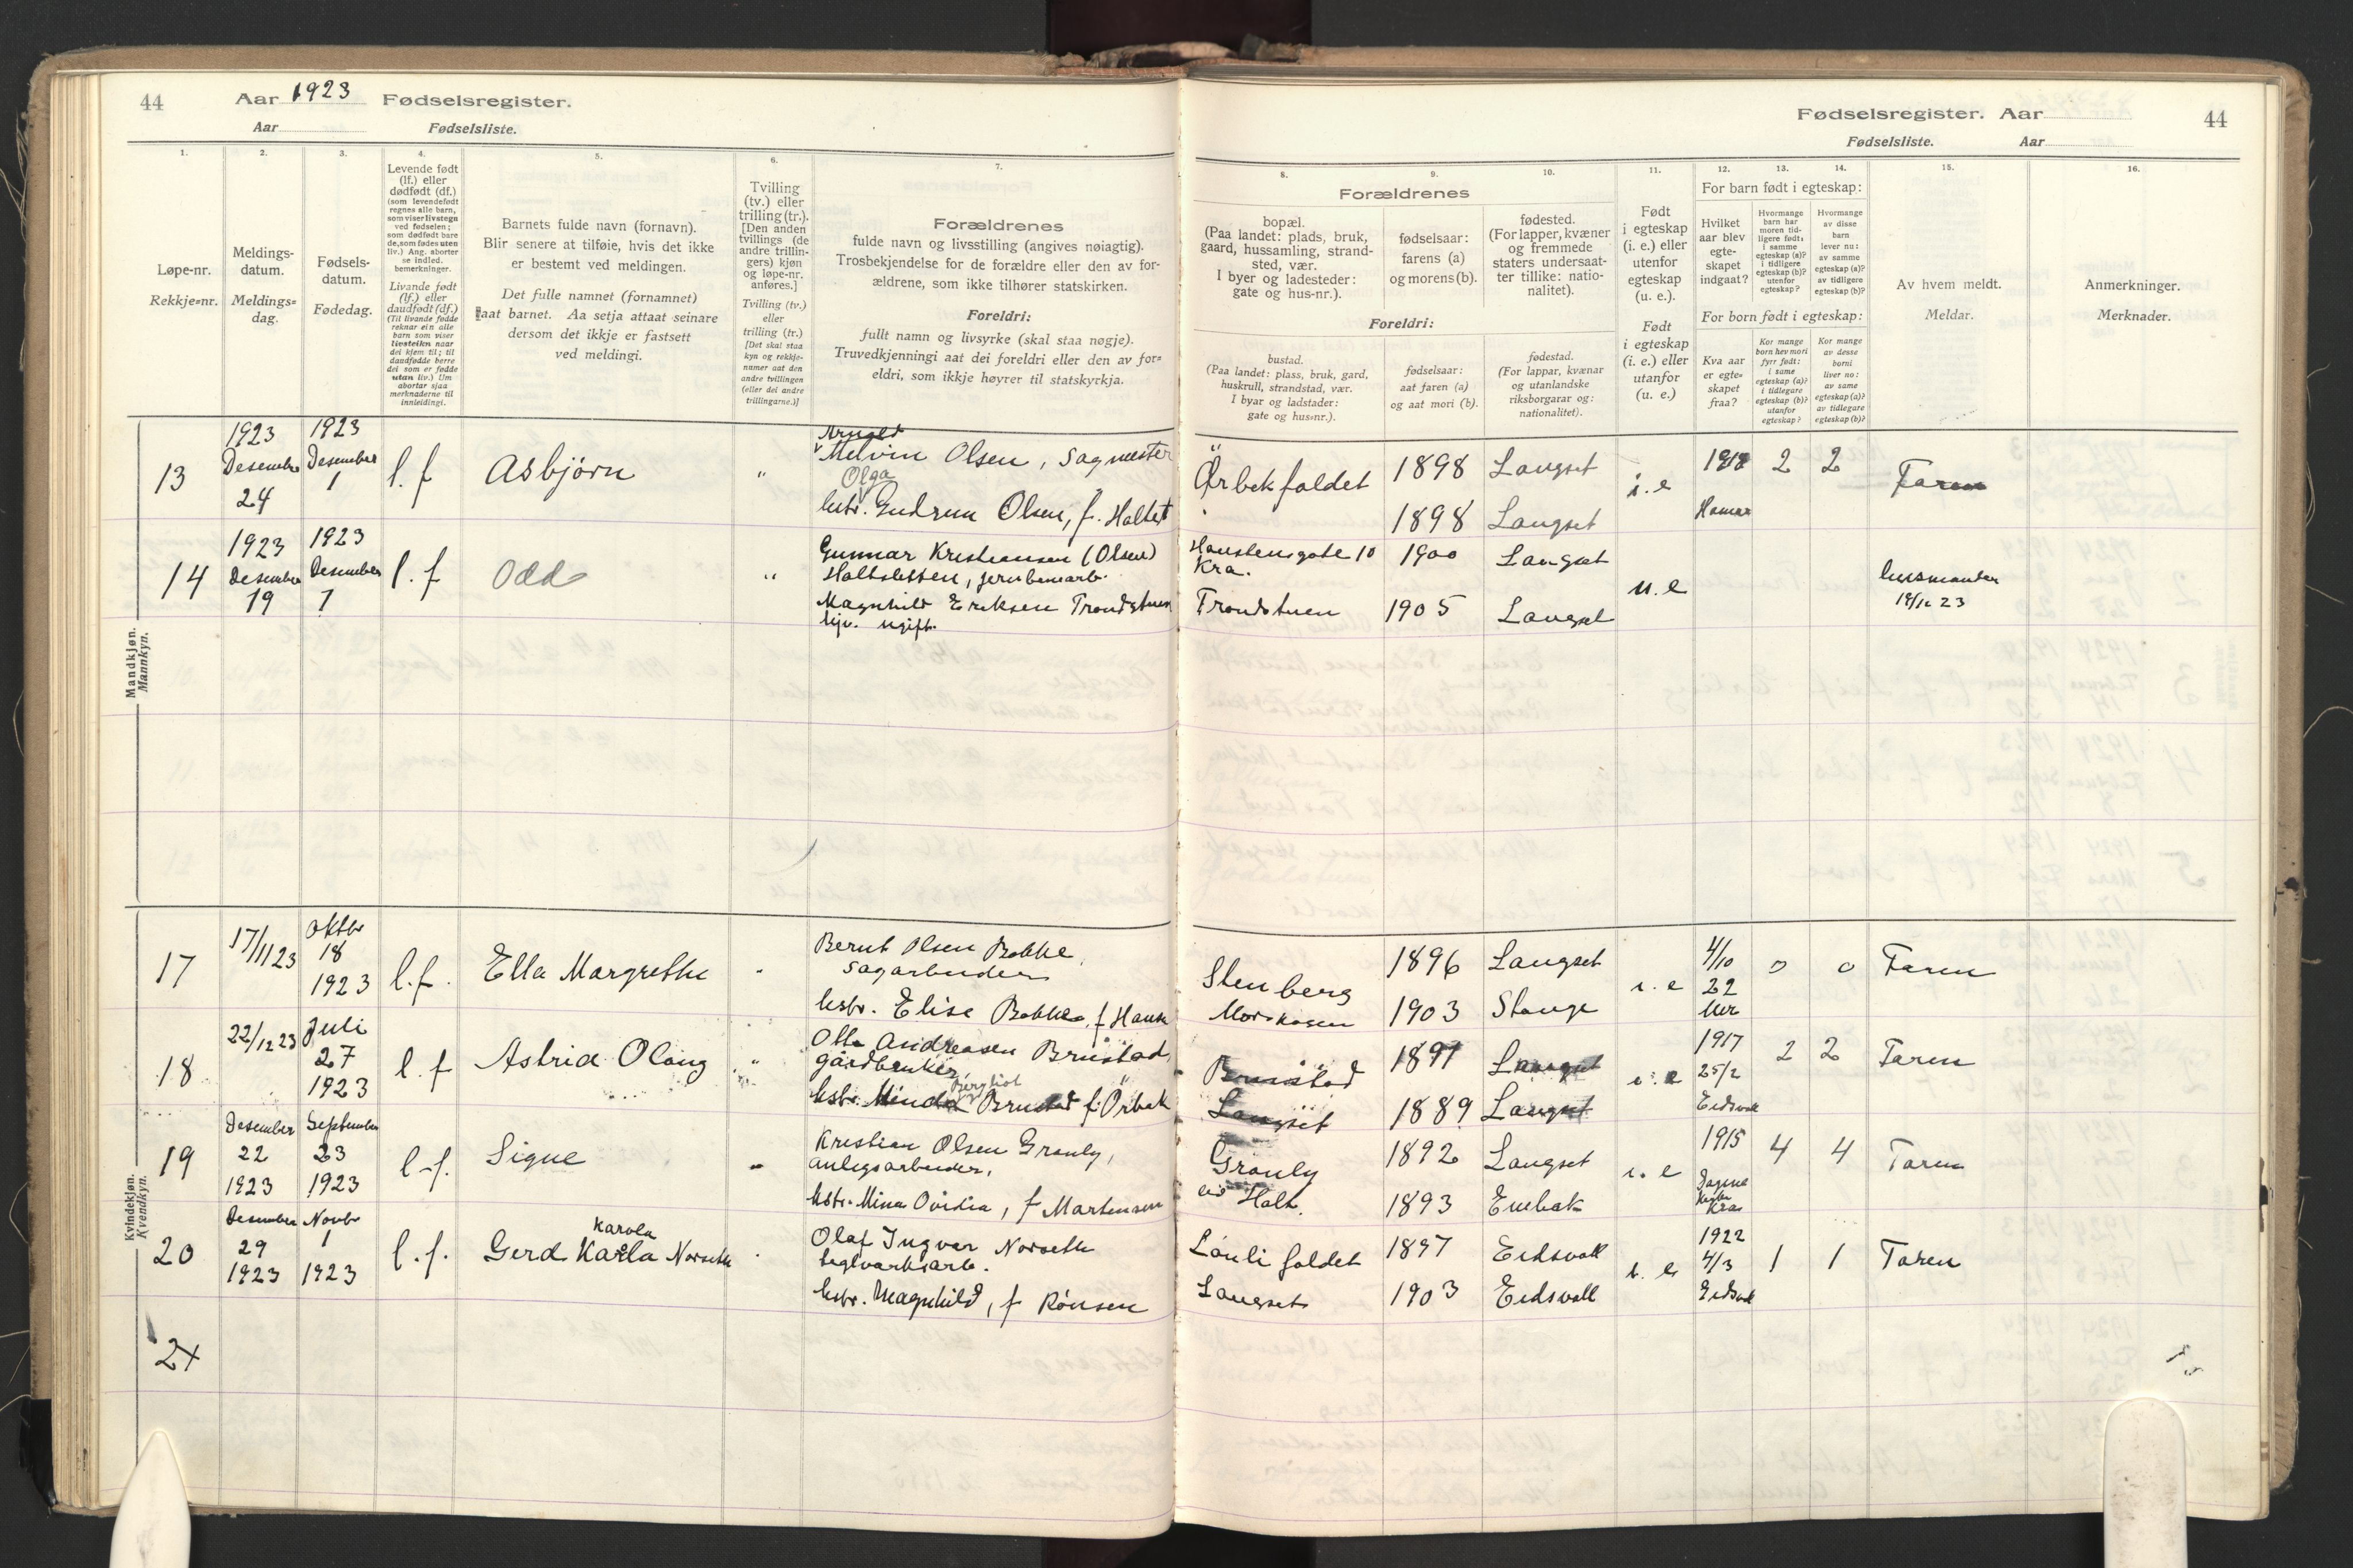 44
Aar 1923 Fødselsregister.
Aar Fødselsliste.
1.
Løpe-nr.
Rekkje-nr.
2.
Meldings-
datum.
Meldings-
dag.
3.
Fødsels-
datum.
Fødedag.
4.
Levende født
(lf.) eller
dødfødt (df.)
(som levendefødt
regnes alle barn,
som viser livstegn
ved fødselen;
som dødfødt bare
de, som fødes uten
liv.) Ang. aborter
se indled.
bemerkninger.
Livande født
(lf.) eller
daudfødt (df.)
(Til livande fødde
reknar ein alle
barn som viser
livsteikn naar
dei kjem til; til
daudfødde berre
dei som er fødde
utan liv.) Um
abortar sjaa
merknaderne til
innleidingi.
5.
Barnets fulde navn (fornavn).
Blir senere at tilføie, hvis det ikke
er bestemt ved meldingen.
Det fulle namnet (fornamnet)
aat barnet. Aa setja attaat seinare
dersom det ikkje er fastsett
ved meldingi.
6.
Tvilling
(tv.) eller
trilling (tr.).
[Den anden
tvillings (de
andre trillin-
gers) kjøn
og løpe-nr.
anføres.]
Tvilling (tv.)
eller
trilling (tr.)
[Det skal staa
kyn og rekkje-
numer aat den
andre tvillingen
(eller dei andre
trillingarne.)]
7.
Forældrenes
fulde navn og livsstilling (angives nøiagtig).
Trosbekjendelse for de forældre eller den av for-
ældrene, som ikke tilhører statskirken.
Foreldri:
fullt namn og livsyrke (skal staa nøgje).
Truvedkjenningi aat dei foreldri eller den av for-
eldri, som ikkje høyrer til statskyrkja.
Mandkjøn.
Mannkyn.
13
1923
Desember
24
1923
Desember
1
l. f
Asbjørn
"
Arnold
Melvin Olsen, sagmester
Olga
hstr. Gudrun Olsen, f. Holtet
14
1923
Desember
19
1923
Desember
1
l. f
Odd
"
Gunnar Kristiansen (Olsen)
Holtsletten, jernbanearb.
Magnhild Eriksen Trondstuen
ugift.
Kvindekjøn.
Kvendkyn.
17
17/11 23
Oktbr
18
1923
l. f.
Ella Margrethe
Bernt Olsen Bekke,
sagarbeider
hstr. Elise Bekke, f Hansen
18
22/12 23
Juli
27
1923
l. f
Astrid Olaug
"
Otto Andreasen Brustad,
gårdbruker,
Bergliot
hstr. Minda Brustad f. Ørbek
19
Desember
22
1923
September
23
1923
l. f.
Signe
Kristian Olsen Grønly,
anlegsarbeider,
hstr. Mina Ovidia, f Martensen
20
Desember
29
1923
Novbr
1
1923
l. f.
Karola
Gerd Karla Norseth
Olaf Ingvar Norseth
teglverksarb.
hstr. Magnhild, f Rønsen
21
Fødselsregister. Aar
44
Fødselsliste. Aar
8.
Forældrenes
bopæl.
(Paa landet: plads, bruk,
gaard, hussamling, strand-
sted, vær.
I byer og ladesteder:
gate og hus-nr.).
Foreldri:
bustad.
(Paa landet: plass, bruk, gard,
huskrull, strandstad, vær.
I byar og ladstader:
gate og hus-nr.).
9.
fødselsaar:
farens (a)
og morens (b).
fødselsaar:
aat faren (a)
og aat mori (b).
10.
fødested.
(For lapper, kvæner
og fremmede
staters undersaat-
ter tillike: natio-
nalitet).
fødestad.
(For lappar, kvænar
og utanlandske
riksborgarar og:
nationalitet).
11.
Født
i egteskap
(i. e.) eller
utenfor
egteskap
(u. e.).
Født
i egteskap
(i. e.) eller
utanfor
(u. e.)
12.
For barn født i egteskap:
Hvilket
aar blev
egte-
skapet
indgaat?
For born født i egteskap:
Kva aar
er egte-
skapet
fraa?
13.
Hvormange
barn har
moren tid-
ligere født:
i samme
egteskap (a)?
i tidligere
egteskap (b)?
utenfor
egteskap?
Kor mange
born hev mori
fyrr født:
i same
egteskap (a)?
i tidlegare
egteskap (b)?
utanfor
egteskap?
14.
Hvormange
av disse
barn
lever nu:
av samme
egteskap (a)?
av tidligere
egteskap (b)?
Kor mange
av desse
borni
liver no:
av same
egteskap (a)?
av tidlegare
egteskap (b)?
15.
Av hvem meldt.
Meldar.
16.
Anmerkninger.
Merknader.
Ørbekfaldet
1898
Langset
1898
Langset
i. e
1918
Hamar
2
2
Faren
10
Kra.
1900
Langset
Trondstuen
1905
Langset
u. e
19/12 23
Stenberg
Morskogen
1896
Langset
1903
Stange
i. e
4/10
22
0
0
Faren
Brustad
Langset
1891
Langset
1889
Langset
i. e
1917
25/2
Eidsvoll
2
2
Faren
Grønly
Holt.
1892
Langset
1893
Enebak
i. e
1915
Kra
4
4
Faren
Lønli faldet
Langset
1897
Eidsvoll
1903
Eidsvoll
i. e
1922
4/3
Eidsvoll
1
1
Faren